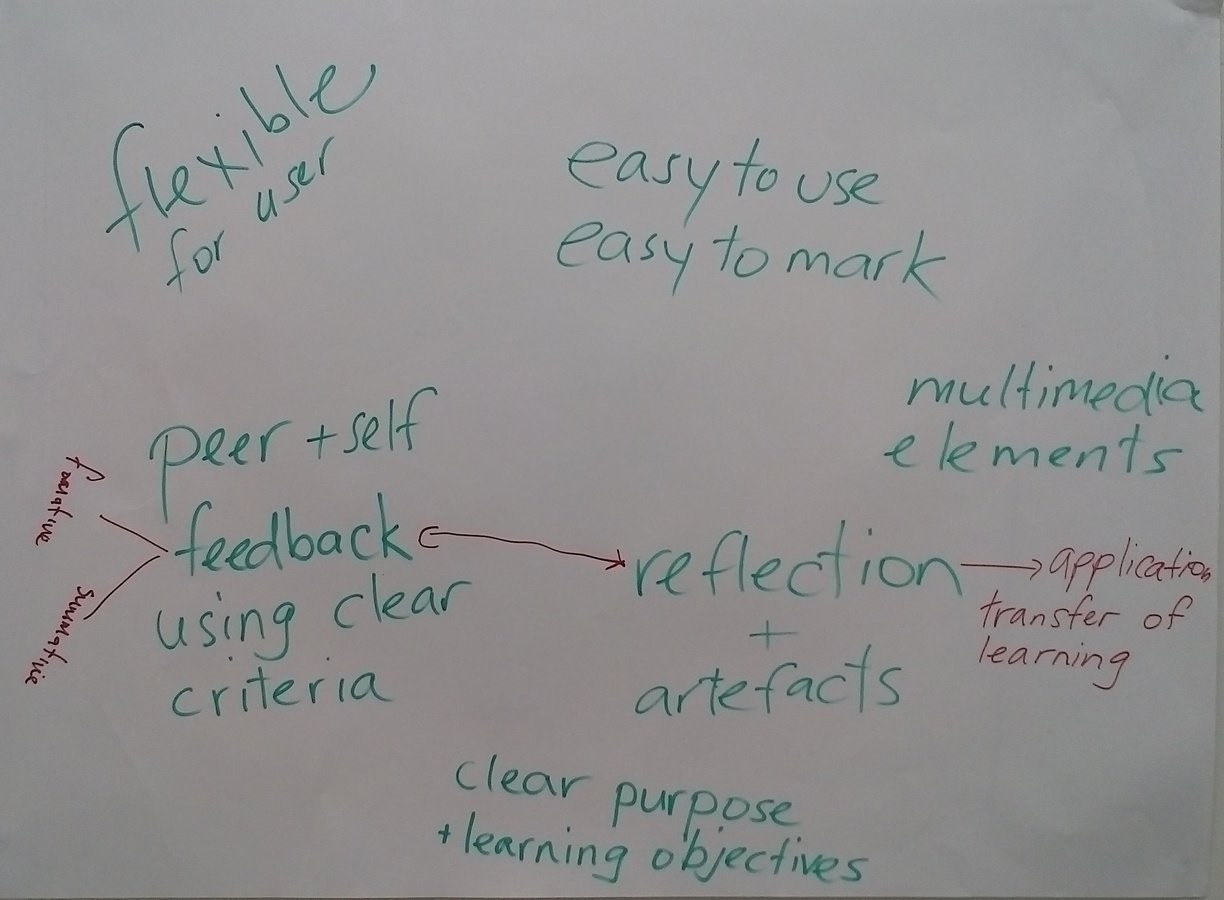 flexible
for user
easy to use
easy to mark
multimedia
elements
peer + self
feedback
using clear
criteria
formative
summative
reflection
+
artefacts
application
transfer of
learning
clear purpose
+ learning objectives